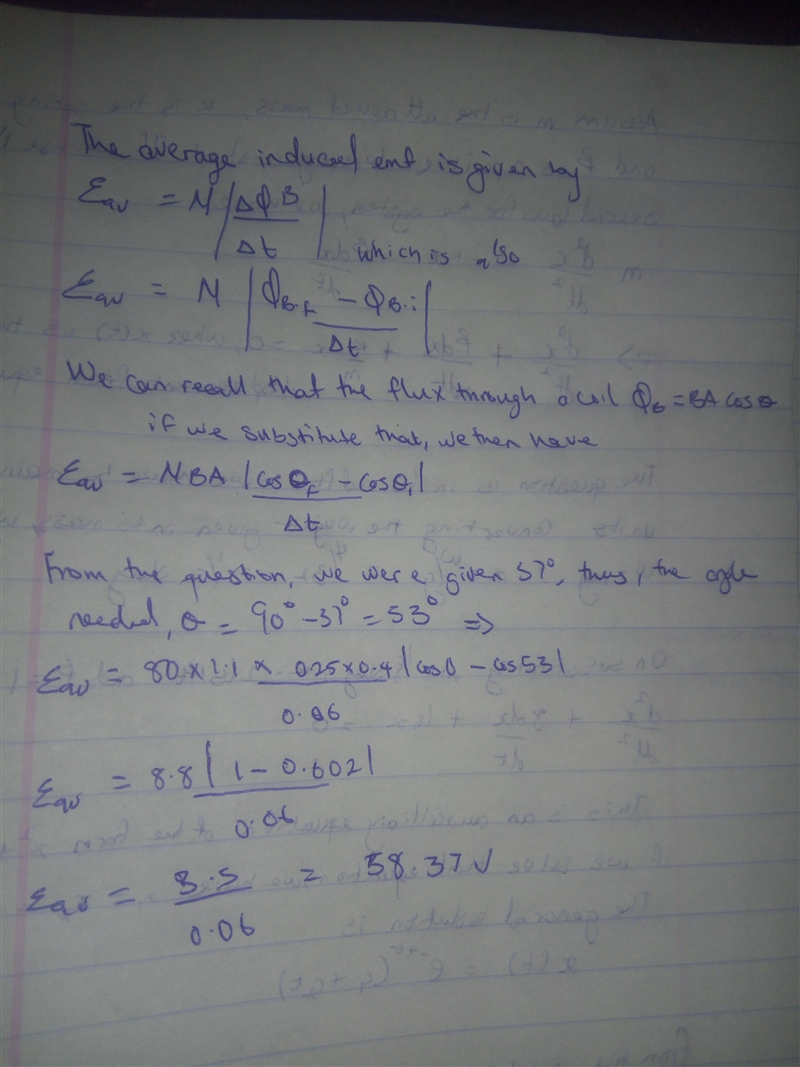 The average induced emf is given by
Ԑav = N |ΔΦB / Δt| which is also
Ԑav = N |ΦB.f - ΦB.i| / Δt
We can recall that the flux through a coil ΦB = BA cos θ
if we substitute that, we then have
Ԑav = NBA |cos θf - cos θi| / Δt
From the question, we were given 37°, thus, the angle
needed, θ = 90° - 37° = 53° =>
Ԑav = 80 x 1.1 x 0.25 x 0.4 |cos 0 - cos 53| / 0.06
Ԑav = 8.8 | 1 - 0.602| / 0.06
Ԑav = 3.5 / 0.06 = 58.37 V